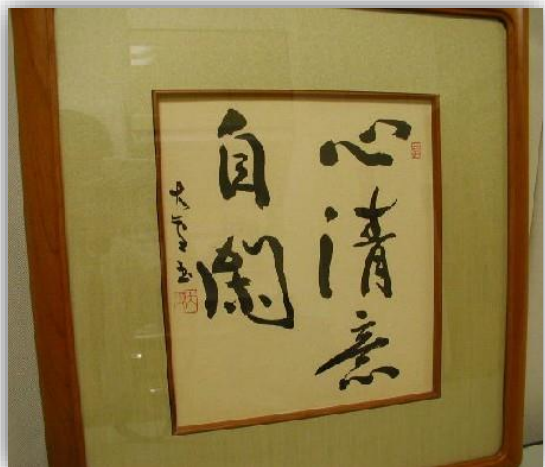 心清意
自閑